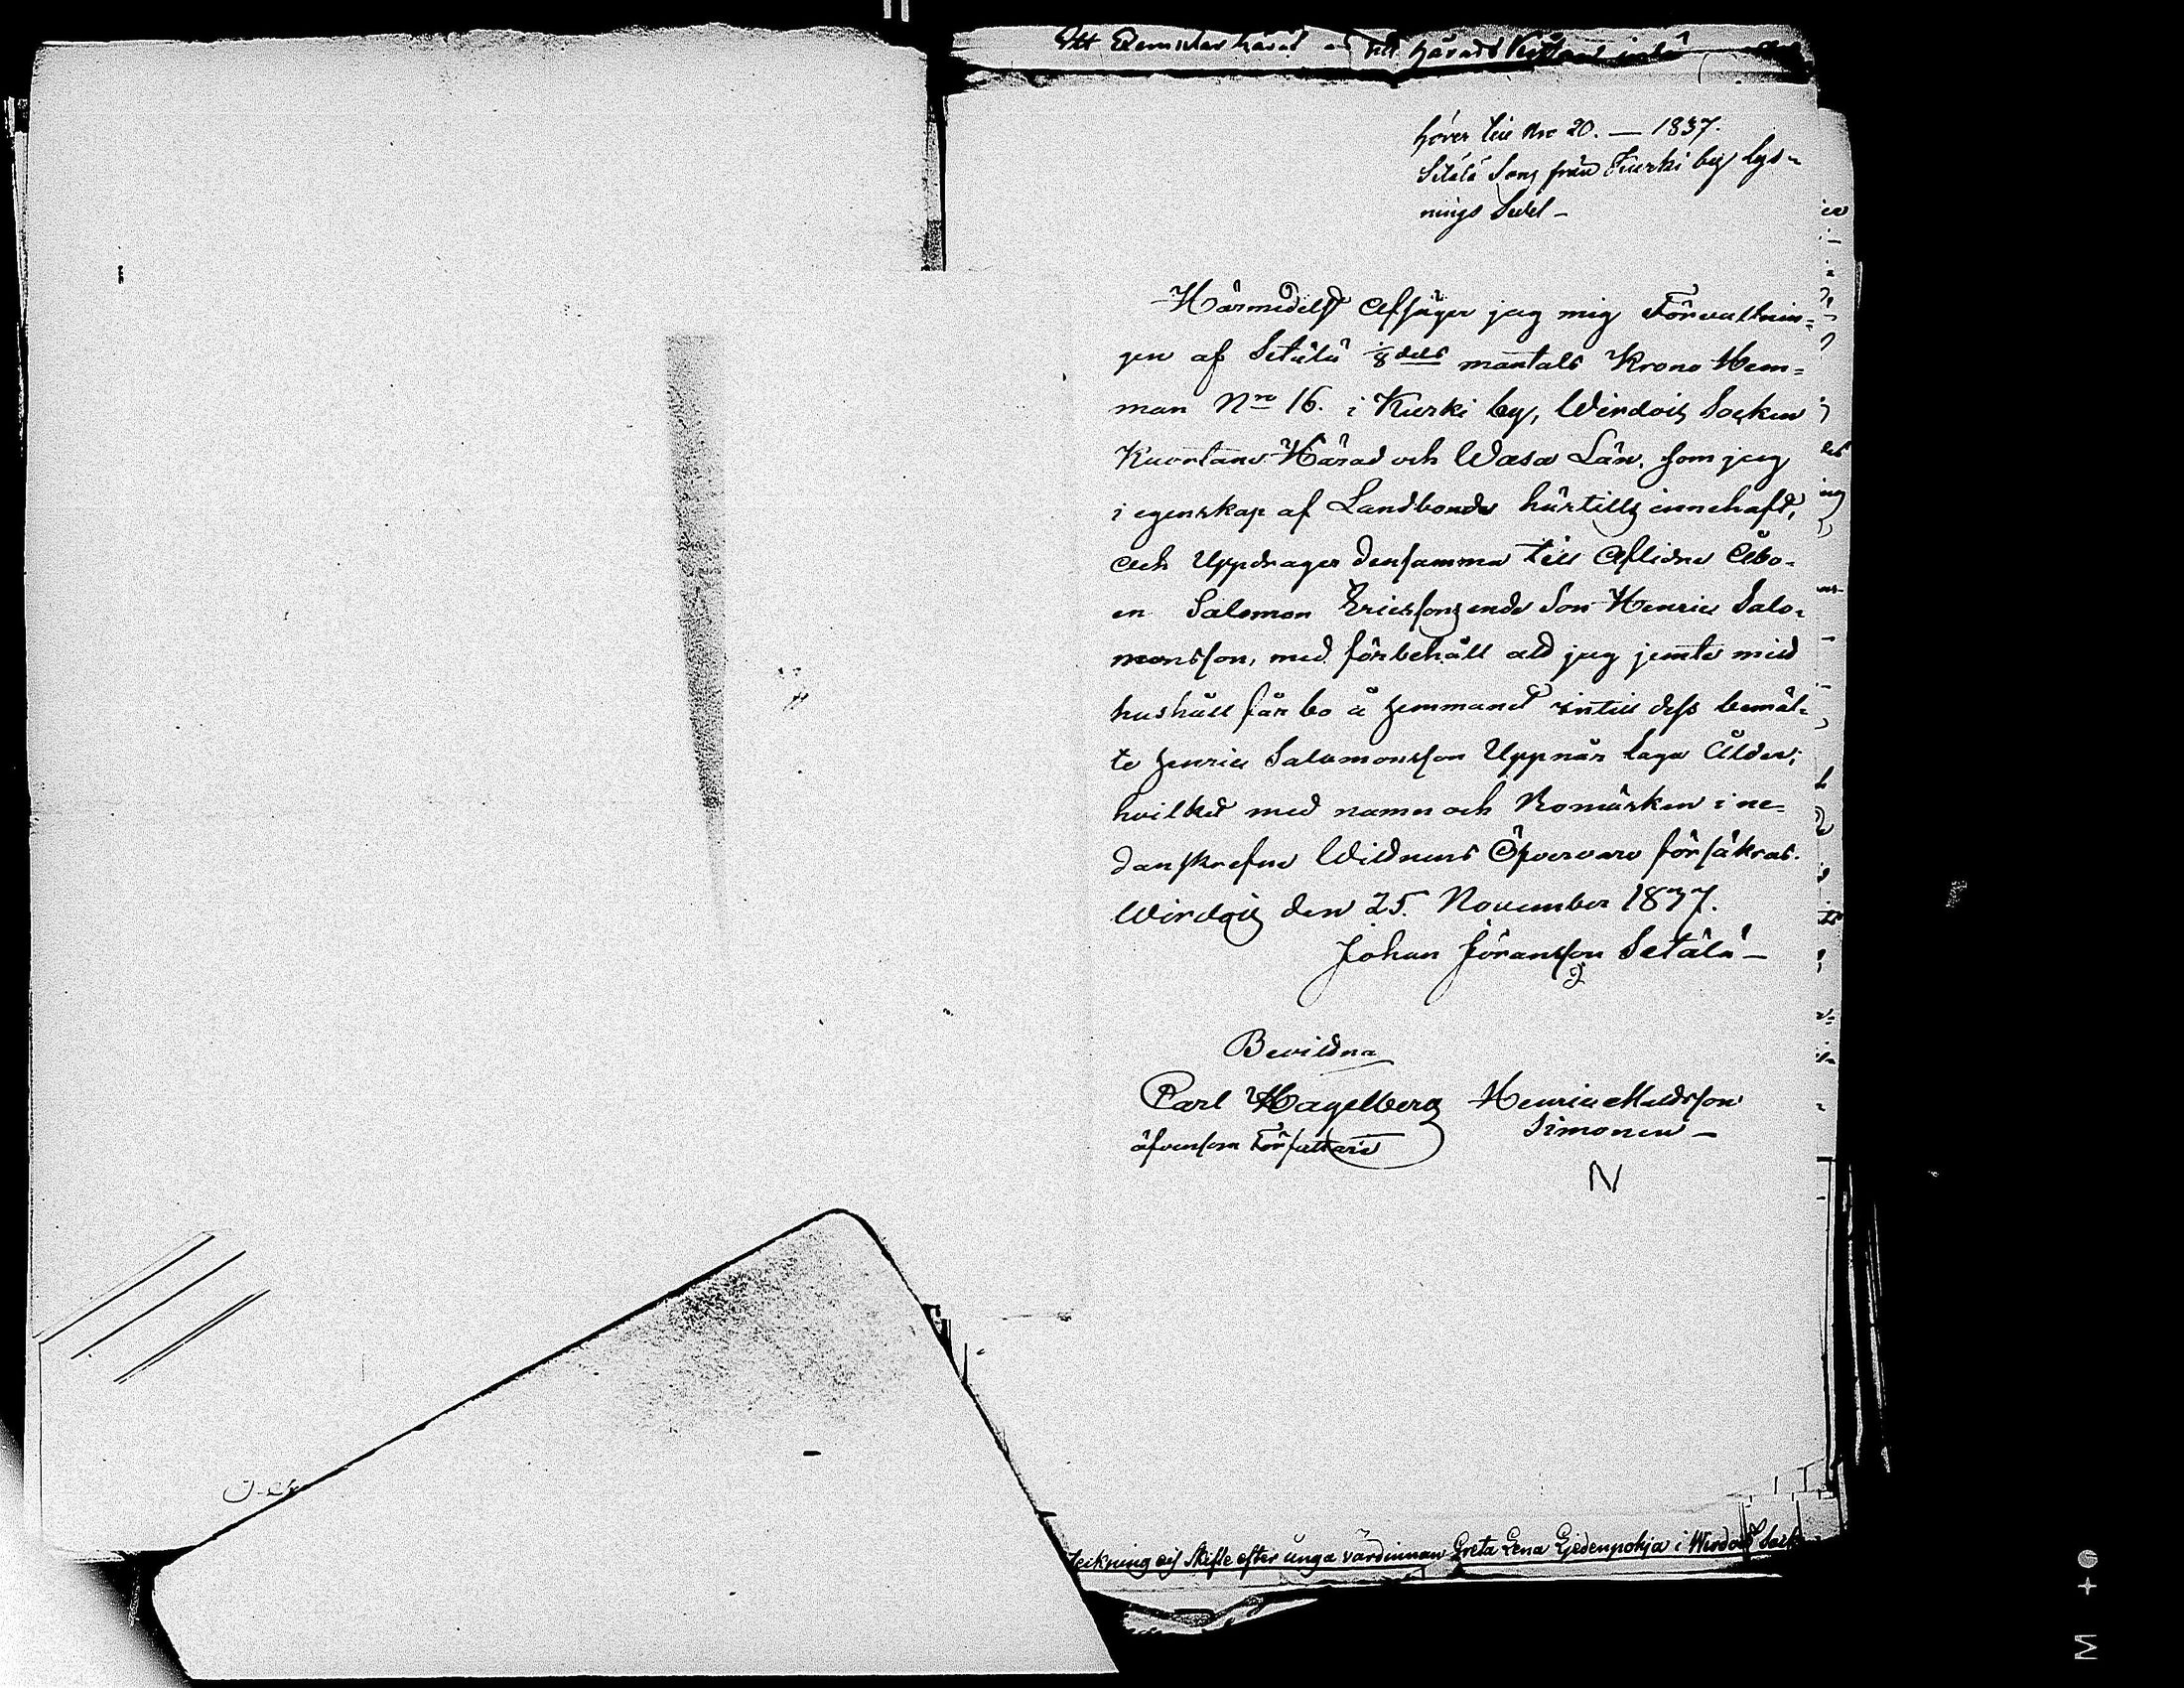 hörer till Nro 20. — 1837.
Setälä Sons från Kurki by lys-
nings Sedel –
Härmedelst Afsäger jag mig Förvaltnin-
gen af Setälä 1/8 dels mantals Krono Hem-
man Nro 16. i Kurki by, Wirdois Socken
Kuortane Härad och Wasa Län, som jag
i egenskap af Landbonde härtills innehaft,
och Uppdrager densamma till Aflidne Åbo-
en Salomon Ericssons ende Son Henric Salo-
monsson, med förbehåll att jag jemte mitt
hushåll får bo å hemmanet intill dess bemäl-
te Henric Salomonsson Uppnår laga Ålder;
hvilket med namn och Bomärken i ne-
danskrefne Wittnens Öfvervaro försäkras.
Wirdois den 25. November 1837.
Johan Jöransson Setälä –
Bevittna
Carl Hagelberg Henric Mattsson
äfvensom Författare Simonen –
N
teckning och Skifte efter unga värdinnan Greta Lena Ejedenpohja i Wirdois Sock